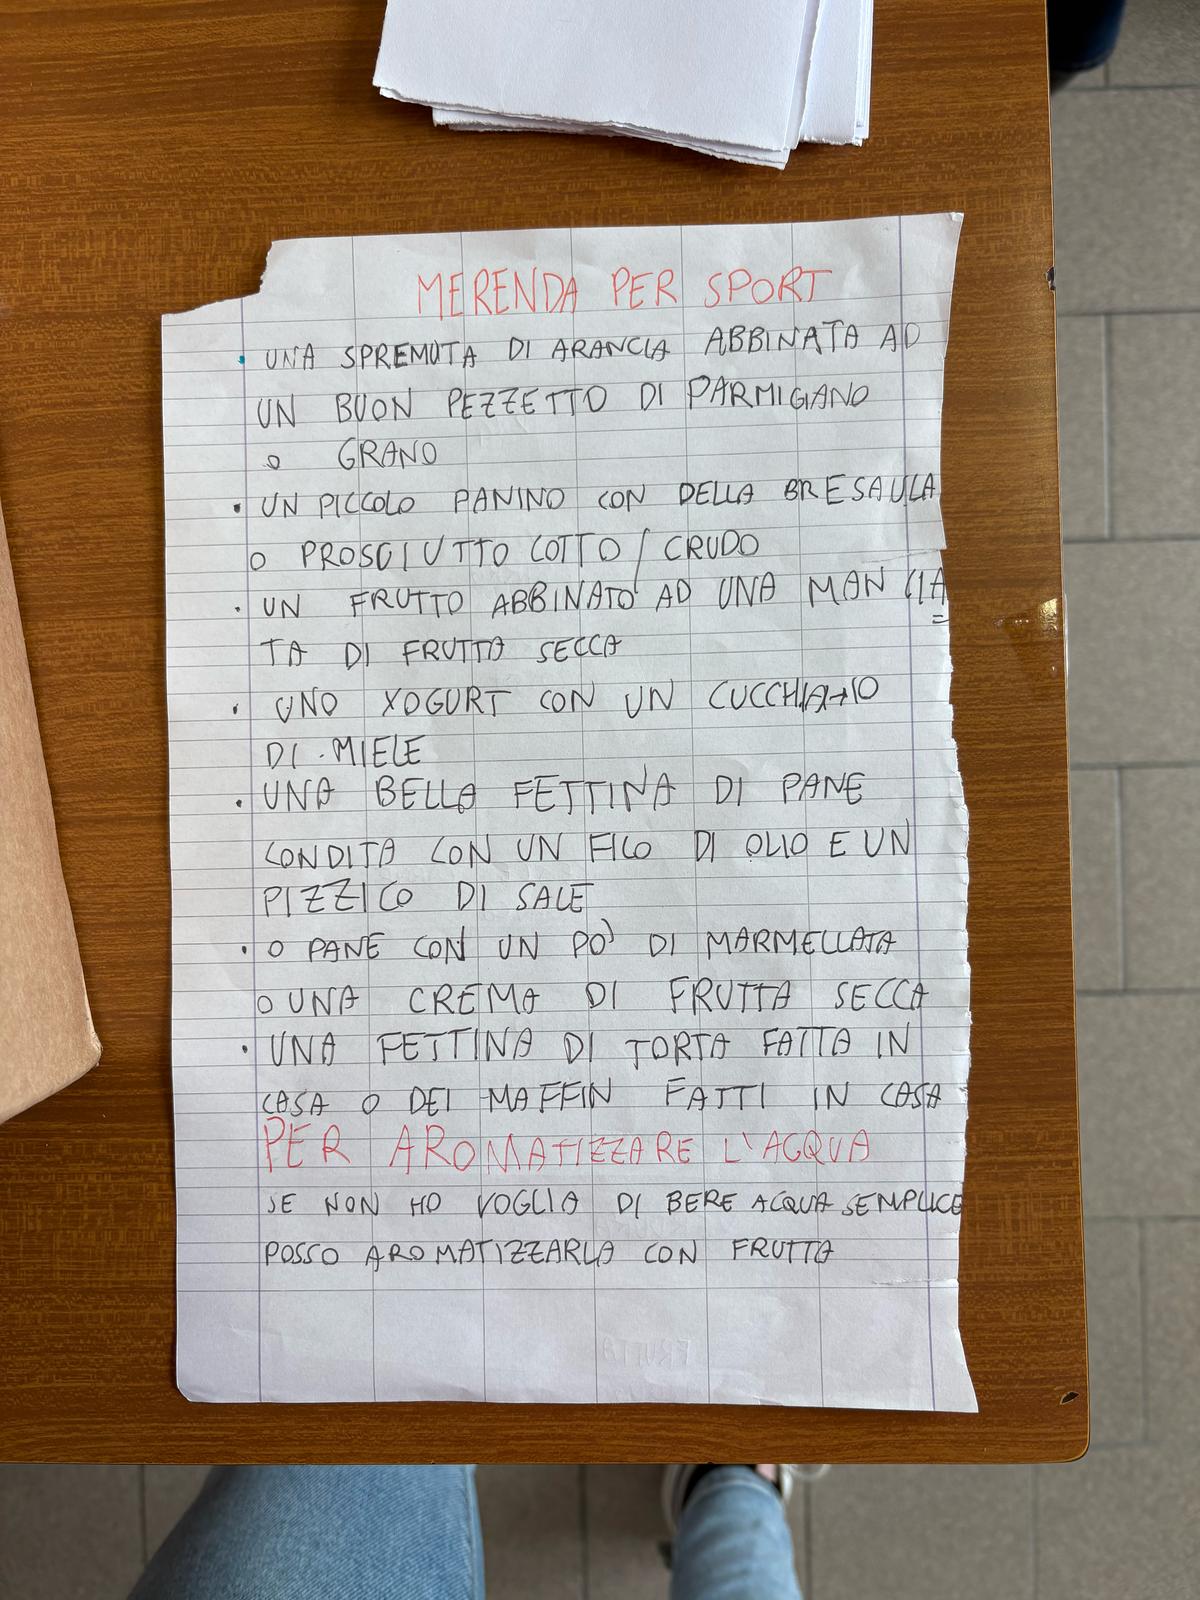 MERENDA PER SPORT
• UNA SPREMUTA DI ARANCIA ABBINATA AD
UN BUON PEZZETTO DI PARMIGIANO
O GRANO
• UN PICCOLO PANINO CON DELLA BRESAULA
O PROSCIUTTO COTTO / CRUDO
• UN FRUTTO ABBINATO AD UNA MANCIA=
TA DI FRUTTA SECCA
• UNO YOGURT CON UN CUCCHIAIO
DI MIELE
• UNA BELLA FETTINA DI PANE
CONDITA CON UN FILO DI OLIO E UN
PIZZICO DI SALE
• O PANE CON UN PO' DI MARMELLATA
O UNA CREMA DI FRUTTA SECCA
• UNA FETTINA DI TORTA FATTA IN
CASA O DEI MAFFIN FATTI IN CASA
PER AROMATIZZARE L'ACQUA
SE NON HO VOGLIA DI BERE ACQUA SEMPLICE
POSSO AROMATIZZARLA CON FRUTTA